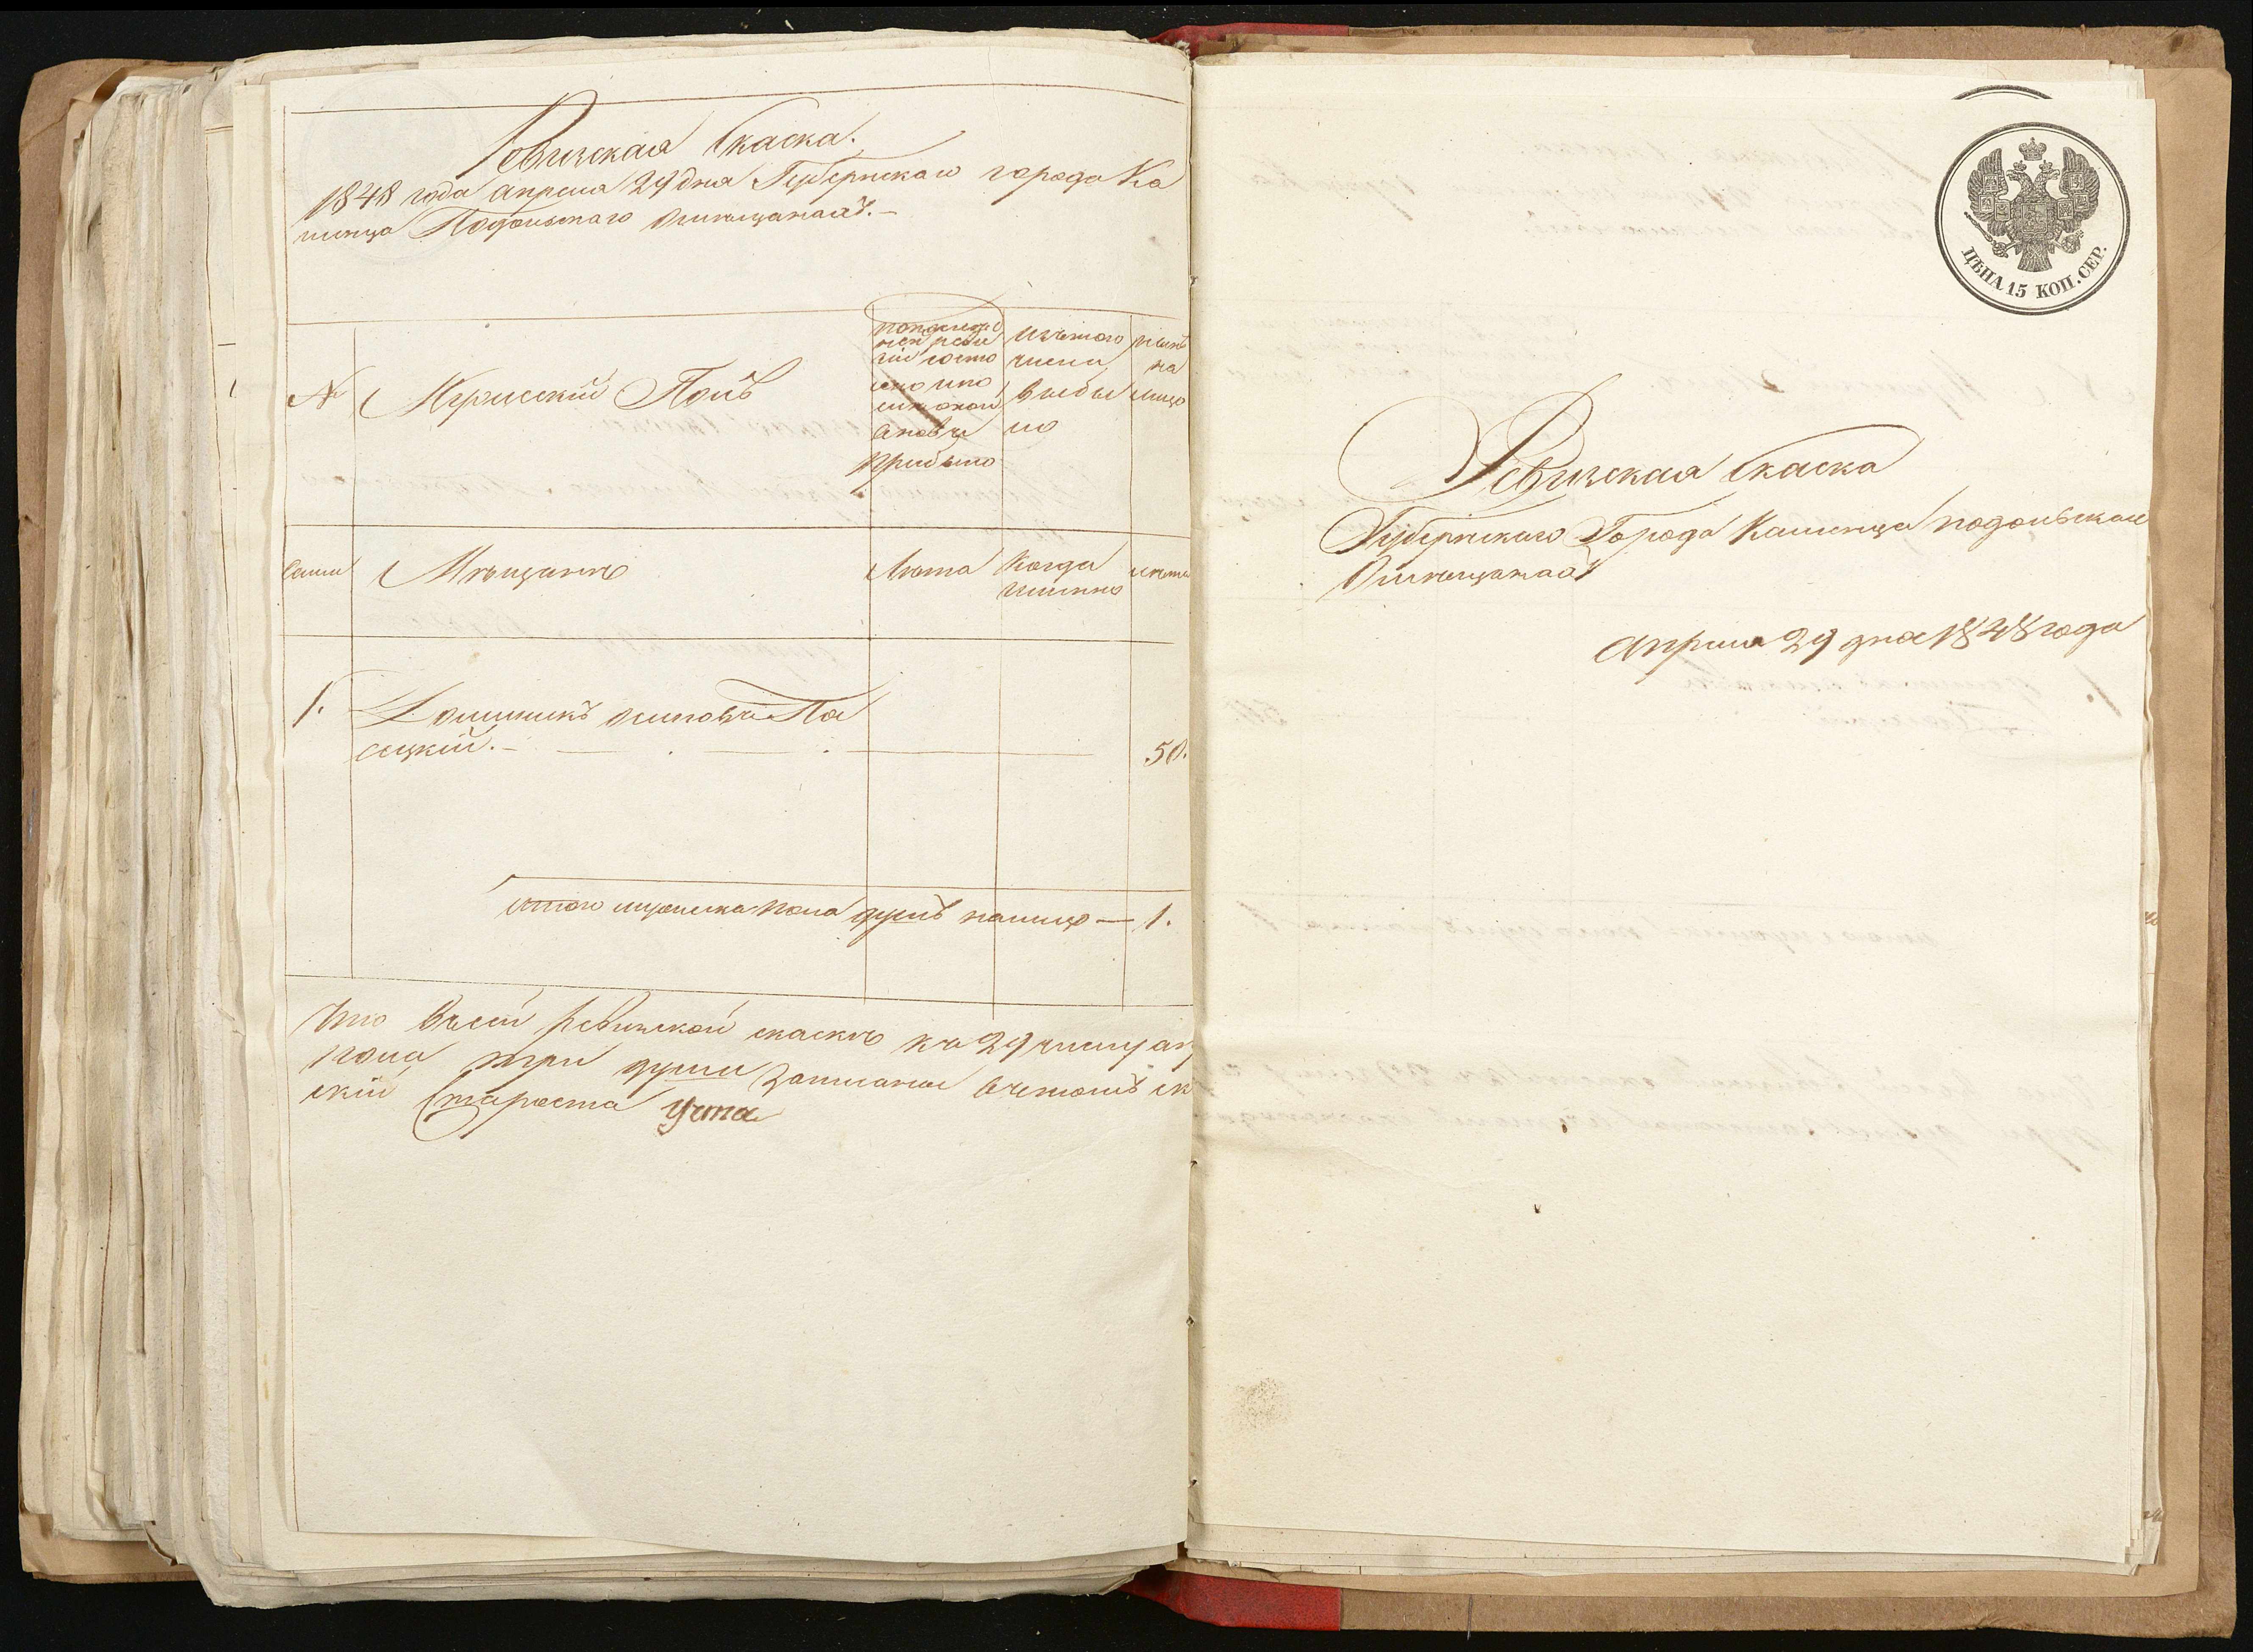 Ревизская Скаска.
1848 года апреля 29 дня Губернскаго города Ка
менца Подольскаго Омещанахъ.
№
Мужескій Полъ
попослед
ней реви
зіи состо
яло ипо
оной
вновь
прибыло
Изътого
числа
выбы
ло
ныне
на
лицо
Семьи
Мѣщане
Лета
Когда
именно
лета
1.
Доминикъ осиповъ Па
сецкій.
50.
итого мужеска пола душъ налицо — 1.
Что въсей ревизской скаске къ 29 числу ап
пола три души записаны вчемъ
скій Староста
ЦѢНА 15 КОП. СЕР.
Ревизская Скаска
Губернскаго Города Каменца подольскаго
Омещанахъ
Апреля 29 дня 1848 года